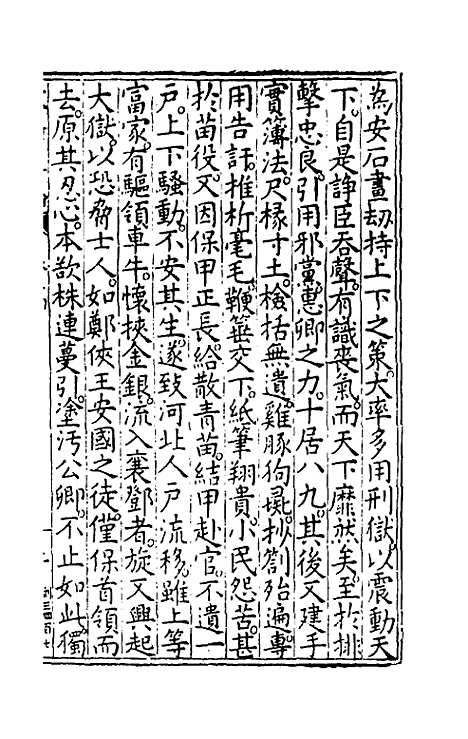 為安石畫劫持上下之策大率多用刑獄以震動天
下自是諍臣吞聲有識喪氣而天下靡然矣至於排
擊忠良引用邪黨惠卿之力十居八九其後又建手
實簿法尺椽寸土檢括無遺雞豚狗彘抄劄殆遍專
用告訐推析毫毛鞭箠交下紙筆翔貴小民怨苦甚
於苗役又因保甲正長給散青苗結甲赴官不遺一
戶上下騷動不安其生遂致河北人戶流移雖上等
富家有驅領車牛懷挾金銀流入襄鄧者旋又興起
大獄以恐脅士人如鄭俠王安國之徒僅保首領而
去原其忍心本欲株連蔓引塗汚公卿不止如此獨